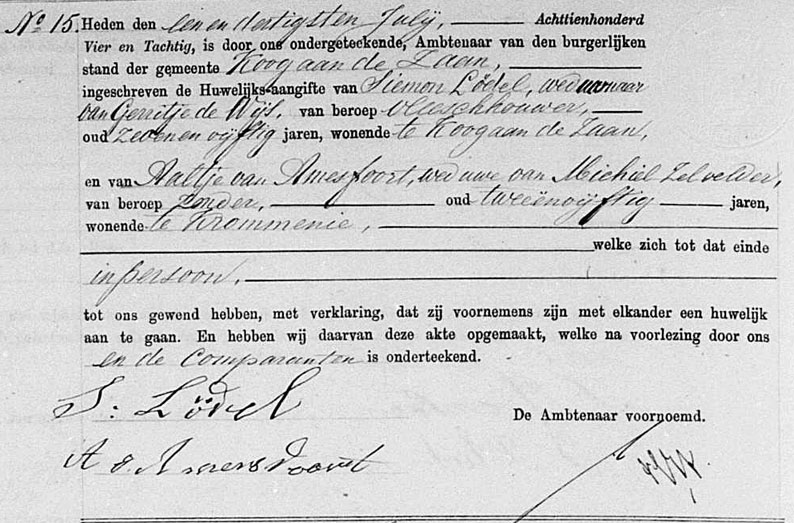 No 15. Heden den een en dertigsten July, Achttienhonderd
Vier en Tachtig, is door ons ondergeteekende, Ambtenaar van den burgerlijken
stand der gemeente Koog aan de Zaan,
ingeschreven de Huwelijks-aangifte van Siemon Lödel, weduwnaar
van Gerritje de Wijs, van beroep vleeschhouwer,
oud zeven en vijftig jaren, wonende te Koog aan de Zaan,
en van Aaltje van Amesfoort, weduwe van Michiel Zelvelder,
van beroep zonder, oud tweeënvijftig jaren,
wonende te Krommenie,
welke zich tot dat einde
in persoon,
tot ons gewend hebben, met verklaring, dat zij voornemens zijn met elkander een huwelijk
aan te gaan. En hebben wij daarvan deze akte opgemaakt, welke na voorlezing door ons
en de Comparanten is onderteekend.
S: Lödel
De Ambtenaar voornoemd.
A v. Amersvoort